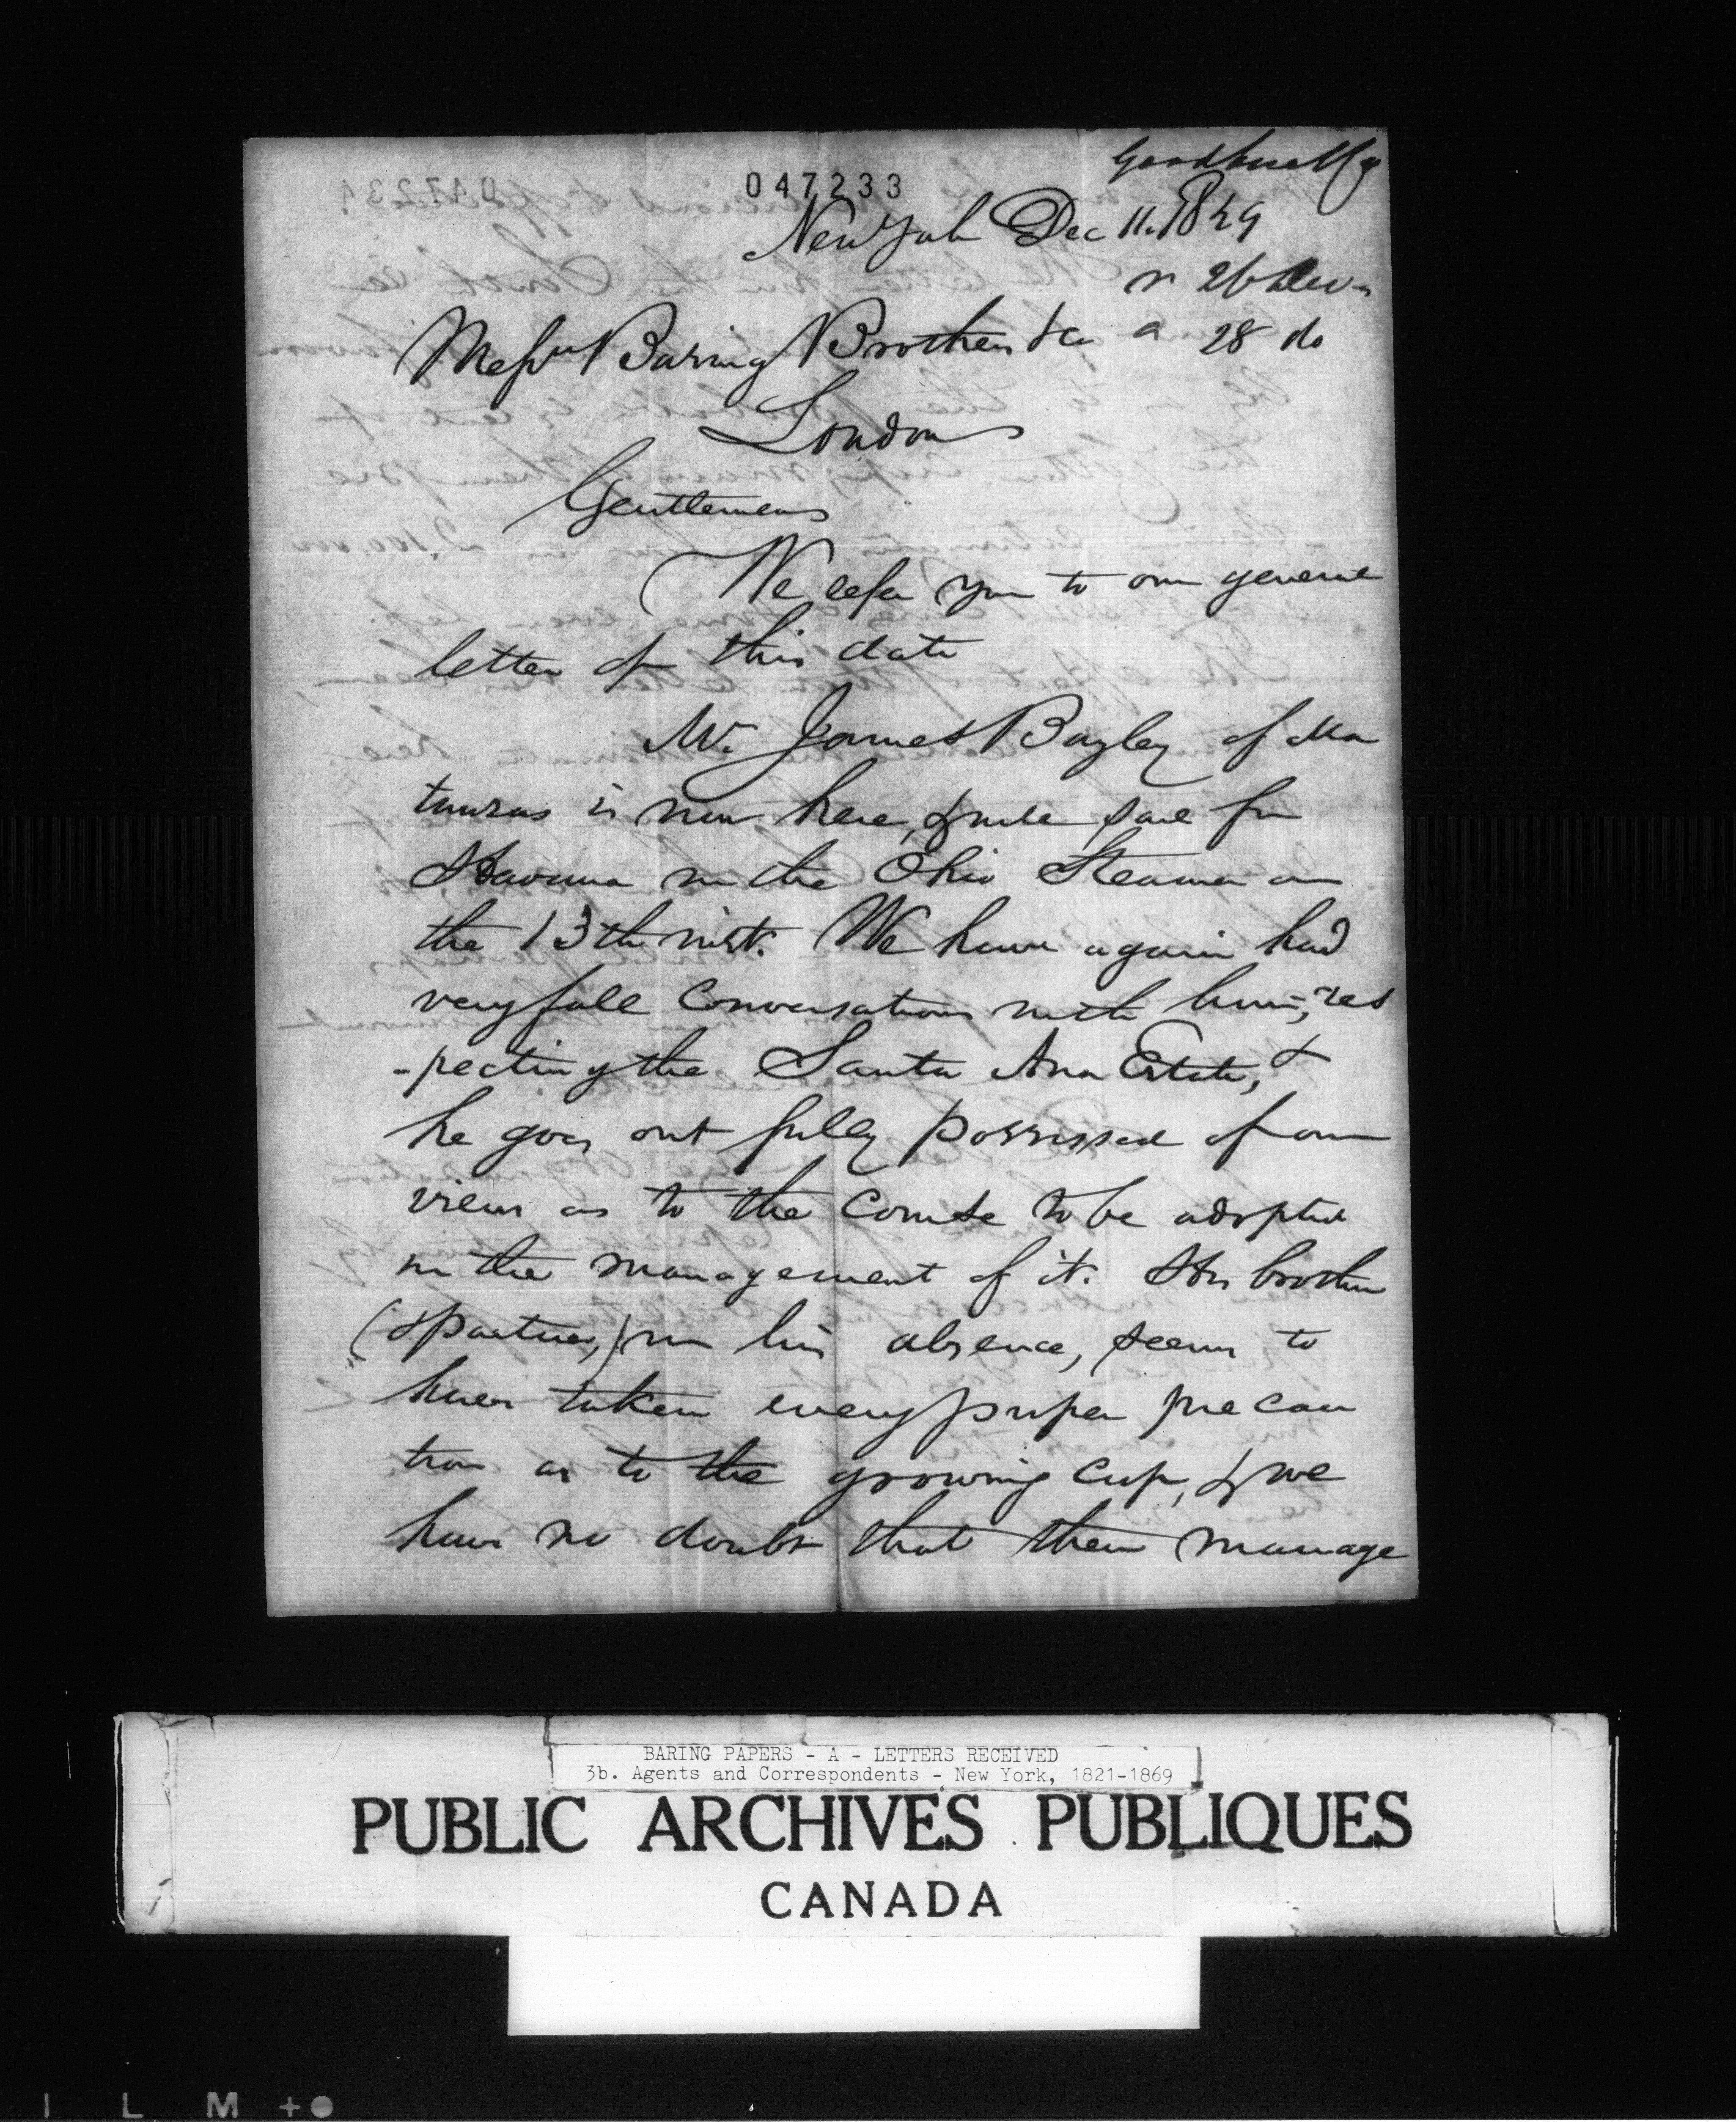 Goodhue & Co
047233
New York Dec 11. 1849
r 26 Dec
Messrs Baring Brothers & Co a 28 do
London
Gentlemen
We refer you to our general
letter of this date
Mr. James Bayley of Ma
tanzas is now here, & will sail for
Havana in the Ohio Steamer on
the 13th inst. We have again had
very full conversations with him, res
-pecting the Santa Ana Estate, &
he goes out fully possessed of our
views as to the course to be adopted
in the management of it. His brother
(& partner,) in his absence, seems to
have taken every proper precau
tion as to the growing crop, & we
have no doubt that their manage
BARING PAPERS - A - LETTERS RECEIVED
3b. Agents and Correspondents - New York, 1821-1869
PUBLIC ARCHIVES PUBLIQUES
CANADA